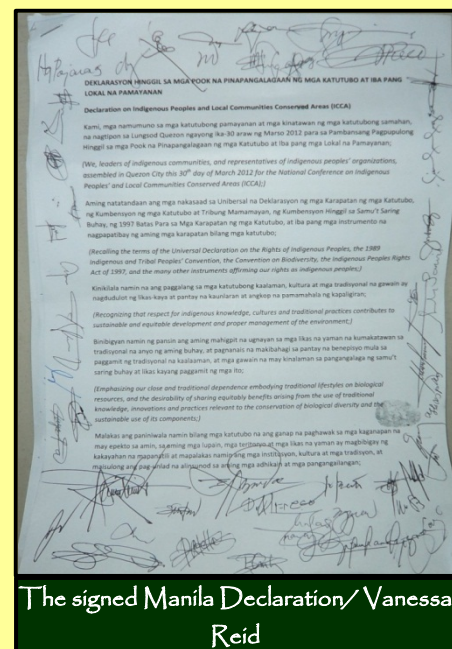 DEKLARASYON HINGGIL SA MGA POOK NA PINAPANGALAGAAN NG MGA KATUTUBO AT IBA PANG
LOKAL NA PAMAYANAN
Declaration on Indigenous Peoples and Local Communities Conserved Areas (ICCA)
Kami, mga namumuno sa mga katutubong pamayanan at mga kinatawan ng mga katutubong samahan,
na nagtipon sa Lungsod Quezon ngayong ika-30 araw ng Marso 2012 para sa Pambansang Pagpupulong
Hinggil sa Mga Pook na Pinapangalagaan ng Mga Katutubo at Iba pang mga Lokal na Pamayanan;
(We, leaders of indigenous communities, and representatives of indigenous peoples' organizations,
assembled in Quezon City this 30th day of March 2012 for the National Conference on Indigenous
Peoples' and Local Communities Conserved Areas (ICCA);)
Aming natatandaan ang mga nakasaad sa Unibersal na Deklarasyon ng Mga Karapatan ng mga Katutubo,
ng Kumbensyon ng mga Katutubo at Tribung Mamamayan, ng Kumbensyon Hinggil sa Samu't Saring
Buhay, ng 1997 Batas Para sa Mga Karapatan ng mga Katutubo, at iba pang mga instrumento na
nagpapatibay ng aming mga karapatan bilang mga katutubo;
(Recalling the terms of the Universal Declaration on the Rights of Indigenous Peoples, the 1989
Indigenous and Tribal Peoples' Convention, the Convention on Biodiversity, the Indigenous Peoples Rights
Act of 1997, and the many other instruments affirming our rights as indigenous peoples;)
Kinikilala namin na ang paggalang sa mga katutubong kaalaman, kultura at mga tradisyonal na gawain ay
nagdudulot ng likas-kaya at pantay na kaunlaran at angkop na pamamahala ng kapaligiran;
(Recognizing that respect for indigenous knowledge, cultures and traditional practices contributes to
sustainable and equitable development and proper management of the environment;)
Binibigyan namin ng pansin ang aming mahigpit na ugnayan sa mga likas na yaman na kumakatawan sa
tradisyonal na anyo ng aming buhay, at pagnanais na makibahagi sa pantay na benepisyo mula sa
paggamit ng tradisyonal na kaalaman, at mga gawain na may kinalaman sa pangangalaga ng samu't
saring buhay at likas kayang paggamit ng mga ito;
(Emphasizing our close and traditional dependence embodying traditional lifestyles on biological
resources, and the desirability of sharing equitably benefits arising from the use of traditional
knowledge, innovations and practices relevant to the conservation of biological diversity and the
sustainable use of its components;)
Malakas ang paniniwala namin bilang mga katutubo na ang ganap na paghawak sa mga kaganapan na
may epekto sa amin, sa aming mga lupain, mga teritoryo at mga likas na yaman ay magbibigay ng
kakayahan na mapanatili at mapalakas namin ang mga institusyon, kultura at mga tradisyon, at
maisulong ang pag-unlad na alinsunod sa aming mga adhikain at mga pangangailangan;
The signed Manila Declaration/ Vanessa
Reid